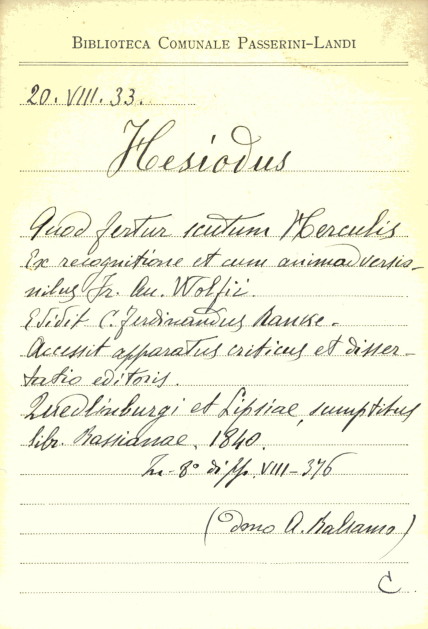 BIBLIOTECA COMUNALE PASSERINI-LANDI
20. VIII. 33.
Hesiodus
Quod fertur scutum Herculis
Ex recognitione et cum animadversio-
nibus Fr. Au. Wolfii.
Edidit C. Ferdinandus Rancke.
Accessit apparatus criticus et disser-
tatio editoris.
Quedlinburgi et Lipsiae, sumptibus
libr. Bassianae, 1840.
In-8° di pp. VIII-376
(dono A. Balsamo)
C